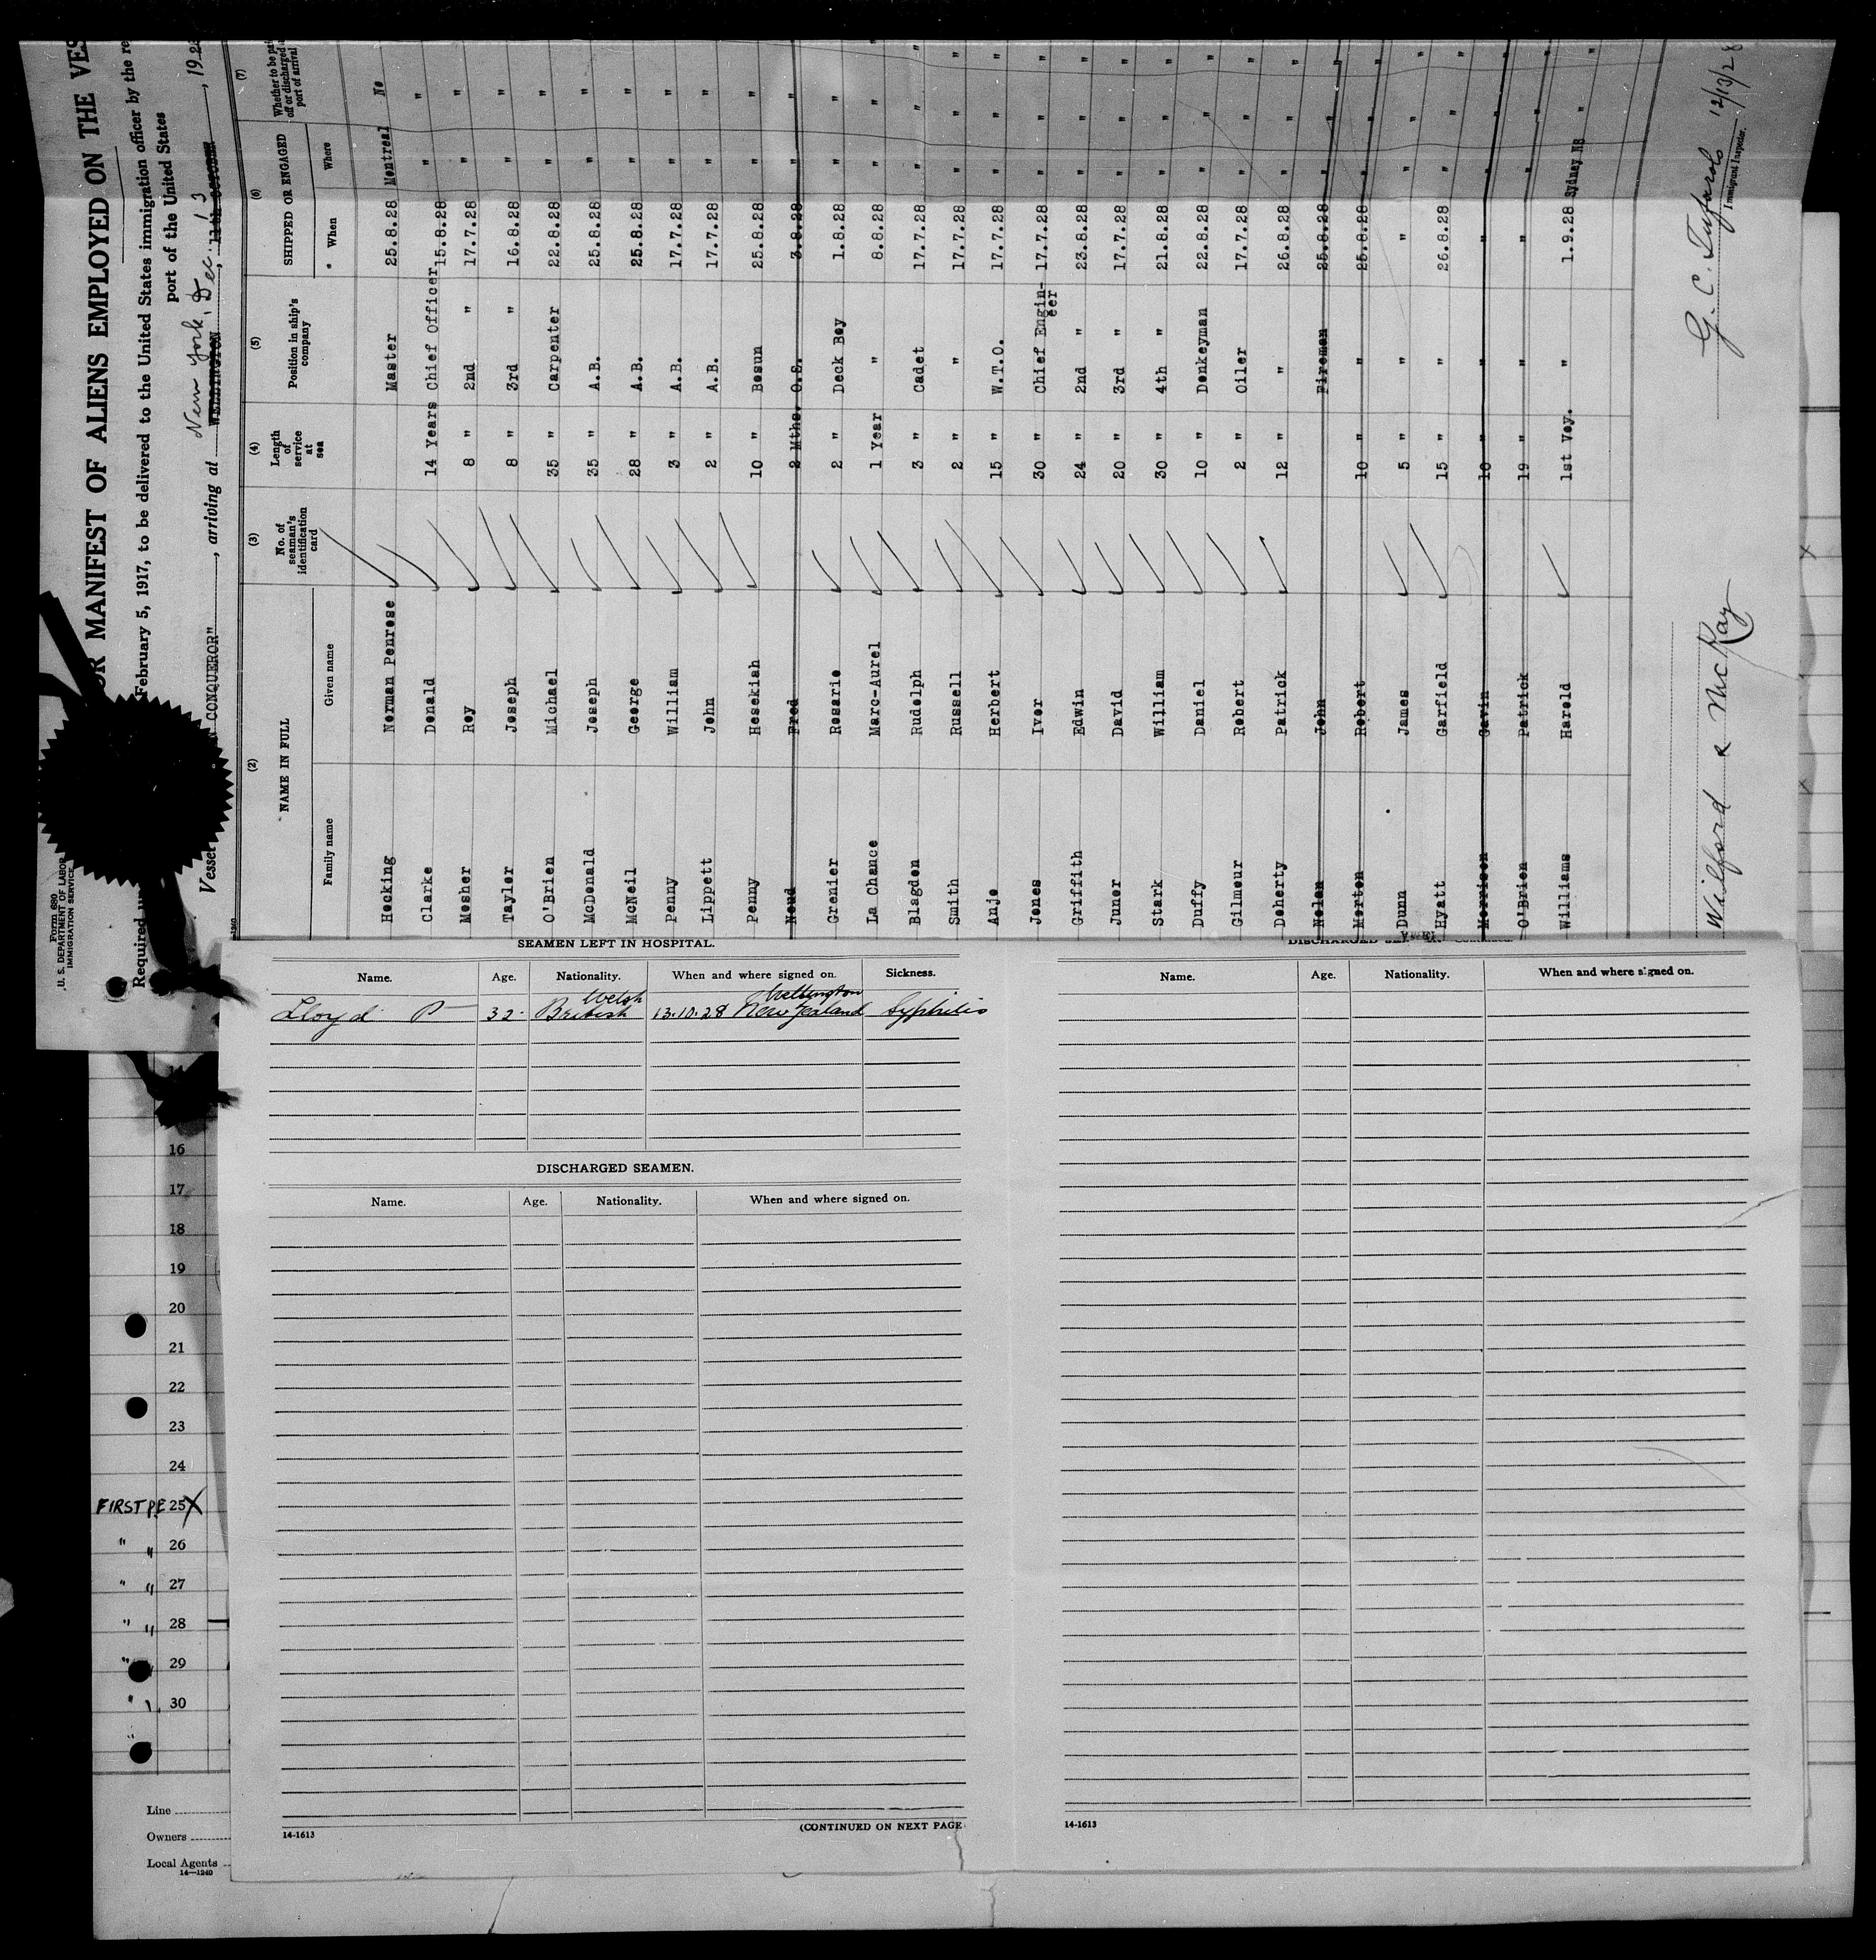 Form 680
U. S. DEPARTMENT OF LABOR
IMMIGRATION SERVICE
OR MANIFEST OF ALIENS EMPLOYED ON THE VES
February 5, 1917, to be delivered to the United States immigration officer by the re
port of the United States
Vessel CONQUEROR", arriving at New York, Dec. 13, 192
WELLINGTON
(2) (3) (4) (5) (6) (7)
NAME IN FULL
Family name Given name
No. of seaman's identification card
Length of service at sea
Position in ship's company
SHIPPED OR ENGAGED
* When Where
Whether to be pai off or discharged port of arrival
Hocking Norman Penrose Master 25.8.28 Montreal No
Clarke Donald 14 Years Chief Officer 15.8.28 " "
Mosher Roy 8 " 2nd " 17.7.28 " "
Taylor Joseph 8 " 3rd " 16.8.28 " "
O'Brien Michael 35 " Carpenter 22.8.28 " "
McDonald Joseph 35 " A.B. 25.8.28 " "
McNeil George 28 " A.B. 25.8.28 " "
Penny William 3 " A.B. 17.7.28 " "
Lippett John 2 " A.B. 17.7.28 " "
Penny Hesekiah 10 " Bosun 25.8.28 " "
Noud Fred 2 Mths. O.S. 3.8.28 " "
Grenier Rosario 2 " Deck Boy 1.8.28 " "
La Chance Marc-Aurel 1 Year " 8.8.28 " "
Blagdon Rudolph 3 " Cadet 17.7.28 " "
Smith Russell 2 " " 17.7.28 " "
Anjo Herbert 15 " W.T.O. 17.7.28 " "
Jones Ivor 30 " Chief Engin-eer 17.7.28 " "
Griffith Edwin 24 " 2nd " 23.8.28 " "
Junor David 20 " 3rd " 17.7.28 " "
Stark William 30 " 4th " 21.8.28 " "
Duffy Daniel 10 " Donkeyman 22.8.28 " "
Gilmour Robert 2 " Oiler 17.7.28 " "
Doherty Patrick 12 " " 26.8.28 " "
Nolan John Fireman 25.8.28 " "
Morton Robert 10 " " 25.8.28 " "
Dunn James 5 " " " " "
Hyatt Garfield 15 " " 26.8.28 " "
Morrison Gavin 10 " " " " "
O'Brien Patrick 19 " " " " "
Williams Harold 1st Voy. " 1.9.28 Sydney NS "
Wilford & McKay
12/13/28
Immigrant Inspector.
SEAMEN LEFT IN HOSPITAL.
Name. Age. Nationality. When and where signed on. Sickness.
Welsh Wellington
Lloyd P 32 British 13.10.28 New Zealand Syphilis
DISCHARGED SEAMEN.
Name. Age. Nationality. When and where signed on.
14-1613
(CONTINUED ON NEXT PAGE
Name. Age. Nationality. When and where signed on.
14-1613
16
17
18
19
20
21
22
23
24
FIRST P.E 25 X
" " 26
" " 27
" " 28
" 29
" 30
Line
Owners
Local Agents
14—1240